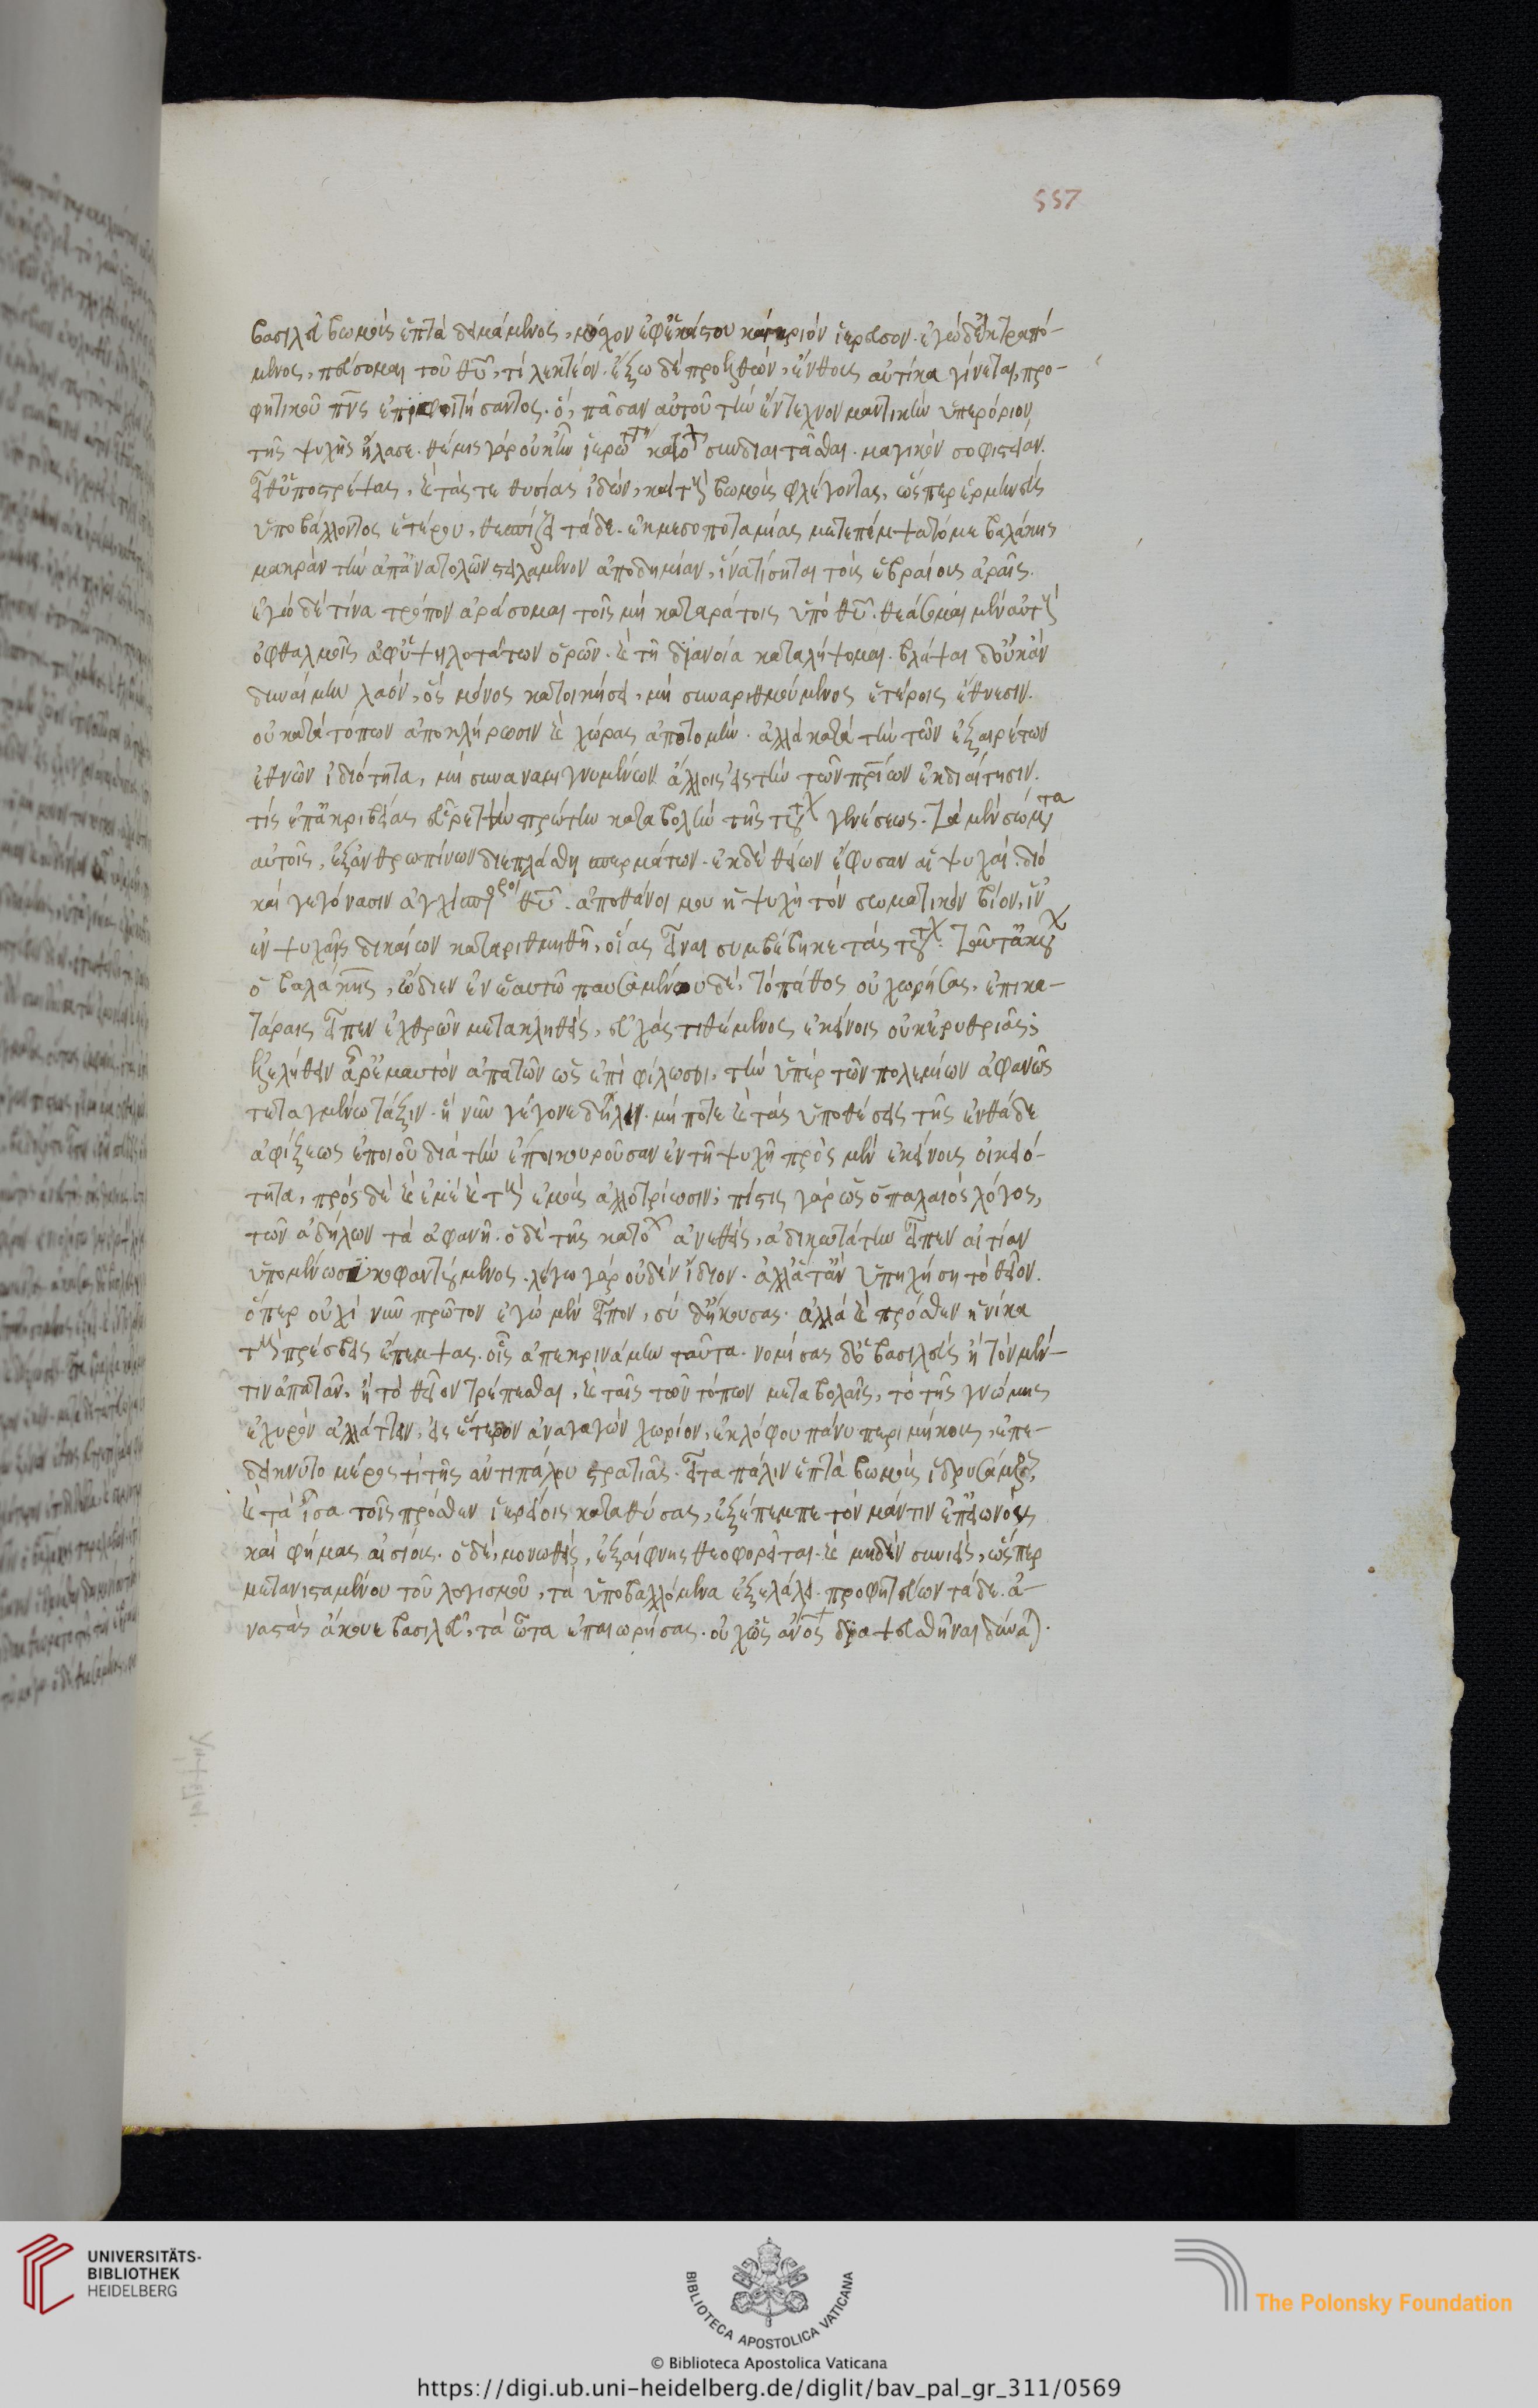 557
βασιλεῦ βωμοὺς ἑπτὰ δειμάμενος, μόσχον ἐφ' ἑκάστου καὶ κριὸν ἱέρευσον. ἐγὼ δ' ἐκτραπό-
μενος, πεύσομαι τοῦ θυ, τί λεκτέον. ἔξω δὲ προελθών, ἔνθους αὐτίκα γίνεται, προ-
φητικοῦ πνς ἐπιφοιτήσαντος. ὃ, πᾶσαν αὐτοῦ τὴν ἔντεχνον μαντικὴν ὑπερόριον
τῆς ψυχῆς ἤλασε. θέμις γὰρ οὐκ ἦν ἱερωτάτη κατοκωχῆ συνδιαιτᾶσθαι. μαγικὴν σοφιστείαν.
εἶθ' ὑποστρέψας, καὶ τάς τε θυσίας ἰδὼν, καὶ τοὺς βωμοὺς φλέγοντας, ὥσπερ ἑρμηνεὺς
ὑποβάλλοντος ἑτέρου, θεσπίζει τάδε. ἐκ μεσοποταμίας μετεπέμψατό με βαλάκης
μακρὰν τὴν ἀπ' ἀνατολῶν στειλάμενον ἀποδημίαν, ἵνα τίσηται τοὺς ἑβραίους ἀραῖς.
ἐγὼ δὲ τίνα τρόπον ἀράσομαι τοῖς μὴ καταράτοις ὑπὸ θυ. θεάσομαι μὲν αὐτοὺς
ὀφθαλμοῖς ἀφ' ὑψηλοτάτων ὀρῶν. καὶ τῆ διανοία καταλήψομαι. βλάψαι δ' οὐκ ἂν
δυναίμην λαόν, ὃς μόνος κατοικήσει, μὴ συναριθμούμενος ἑτέροις ἔθνεσιν.
οὐ κατὰ τόπων ἀποκλήρωσιν καὶ χώρας ἀποτομήν. ἀλλὰ κατὰ τὴν τῶν ἐξαιρέτων
ἐθνῶν ἰδιότητα, μὴ συναναμιγνυμένων ἄλλοις εἰς τὴν τῶν πρίων ἐκδιαίτησιν.
τίς ἐπ' ἀκριβείας εὗρε τὴν πρώτην καταβολὴν τῆς τούτων γενέσεως. τὰ μὲν σώματα
αὐτοῖς, ἐξ ἀνθρωπίνων διεπλάσθη σπερμάτων. ἐκ δὲ θείων ἔφυσαν αἱ ψυχαί. διὸ
καὶ γεγόνασιν ἀγχίσποροι θυ. ἀποθάνοι μου ἡ ψυχὴ τὸν σωματικὸν βίον, ἵν'
ἐν ψυχαῖς δικαίων καταριθμηθῆ, οἵας εἶναι συμβέβηκε τὰς τούτων. ταῦτ' ἀκούων
ὁ βαλάκης, ὤδινεν ἐν ἑαυτῶ παυσαμένου δὲ, τὸ πάθος οὐ χωρήσας. ἐπικα-
τάραις εἶπεν ἐχθρῶν μετακληθεὶς, εὐχὰς τιθέμενος ἐκείνοις οὐκ ἐρυθριᾶς;
ἐλελήθειν ἄρ' ἐμαυτὸν ἀπατῶν ὡς ἐπὶ φίλω σοι, τὴν ὑπὲρ τῶν πολεμίων ἀφανῶς
τεταγμένω τάξιν. ἣ νῦν γέγονε δῆλη. μή ποτε καὶ τὰς ὑποθέσεις τῆς ἐνθάδε
ἀφίξεως ἐποιοῦ διὰ τὴν ἐποικουροῦσαν ἐν τῆ ψυχῆ πρὸς μὲν ἐκείνους οἰκειό-
τητα, πρὸς δὲ καὶ ἐμὲ καὶ τοὺς ἐμοὺς ἀλλοτρίωσιν; πίστις γὰρ ὡς ὁ παλαιὸς λόγος,
τῶν ἀδήλων τὰ ἀφανῆ. ὁ δὲ τῆς κατοκωχῆς ἀνεθεὶς, ἀδικωτάτην εἶπεν αἰτίαν
ὑπομένω συκοφαντούμενος. λέγω γὰρ οὐδὲν ἴδιον. ἀλλ' ἅττ' ἂν ὑπηχήση τὸ θεῖον.
ὅπερ οὐχὶ νῦν πρῶτον ἐγὼ μὲν εἶπον, σὺ δ' ἤκουσας. ἀλλὰ καὶ πρόσθεν ἡνίκα
τοὺς πρέσβεις ἔπεμψας. οἷς ἀπεκρινάμην ταῦτα. νομίσας δ' ὁ βασιλεὺς ἢ τὸν μάν-
τιν ἀπατᾶν, ἢ τὸ θεῖον τρέπεσθαι, καὶ ταῖς τῶν τόπων μεταβολαῖς, τὸ τῆς γνώμης
ἐχυρὸν ἀλλάττειν, εἰς ἕτερον ἀναγαγὼν χωρίον, ἐκ λόφου πάνυ περιμήκους, ἐπε-
δείκνυτο μέρος τι τῆς ἀντιπάλου στρατιᾶς. εἶτα πάλιν ἑπτὰ βωμοὺς ἱδρυσάμενος,
καὶ τὰ ἴσα τοῖς πρόσθεν ἱερείοις καταθύσας, ἐξέπεμπε τὸν μάντιν ἐπ' οἰωνοὺς
καὶ φήμας αἰσίους. ὁ δὲ, μονωθεὶς, ἐξαίφνης θεοφορεῖται. καὶ μηδὲν συνιεὶς, ὥσπερ
μετανισταμένου τοῦ λογισμοῦ, τὰ ὑποβαλλόμενα ἐξελάλει. προφητεύων τάδε. ἀ-
ναστὰς ἄκουε βασιλεῦ, τὰ ὦτα ἐπαιωρήσας. οὐχ ὡς ἀνος διαψευσθῆναι δύναται.
UNIVERSITÄTS-
BIBLIOTHEK
HEIDELBERG
BIBLIOTECA APOSTOLICA VATICANA
The Polonsky Foundation
© Biblioteca Apostolica Vaticana
https://digi.ub.uni-heidelberg.de/diglit/bav_pal_gr_311/0569